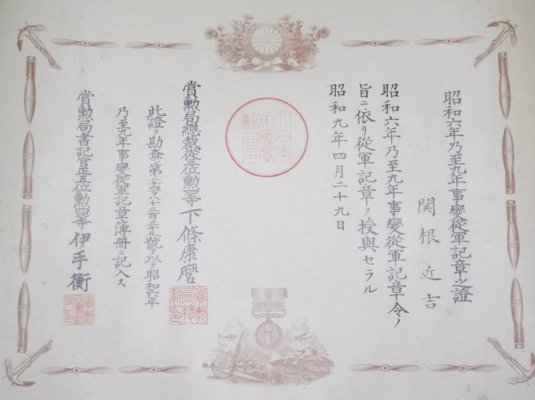 昭和六年乃至九年事變從軍記章之證
関根近吉
昭和六年乃至九年事變從軍記章令ノ
旨ニ依リ從軍記章ヲ授與セラル
昭和九年四月二十九日
賞勲局總裁從三位勲等下條康麿
此證ヲ勘査シ第號ヲ以テ昭和六年
乃至九年事變從軍記章簿冊ニ記入ス
賞勲局書記官正五位勲四等伊手衡